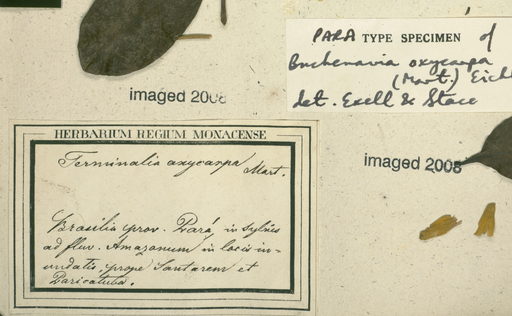 PARA TYPE SPECIMEN of
Buchenavia oxycarpa
(Mart.) Eichl
det. Exell & Stace
imaged 2008
imaged 2008
HERBARIUM REGIUM MONACENSE
Terminalia oxycarpa Mart.
Brasilia prov. Pará, in sylvis
ad fluv. Amazonum in locis in-
undatis, prope Santarem et
Paricatuba.